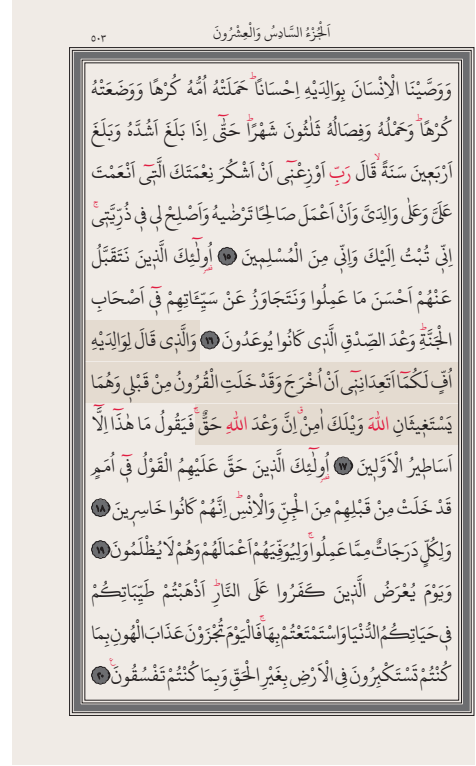 اَلْجُزْءُ السَّادِسُ وَالْعِشْرُونَ
٥٠٣
وَوَصَّيْنَا الْاِنْسَانَ بِوَالِدَيْهِ اِحْسَانًاۜ حَمَلَتْهُ اُمُّهُ كُرْهًا وَوَضَعَتْهُ
كُرْهًاۜ وَحَمْلُهُ وَفِصَالُهُ ثَلٰثُونَ شَهْرًاۜ حَتّٰٓى اِذَا بَلَغَ اَشُدَّهُ وَبَلَغَ
اَرْبَعٖينَ سَنَةًۙ قَالَ رَبِّ اَوْزِعْنٖٓى اَنْ اَشْكُرَ نِعْمَتَكَ الَّتٖٓى اَنْعَمْتَ
عَلَىَّ وَعَلٰى وَالِدَىَّ وَاَنْ اَعْمَلَ صَالِحًا تَرْضٰيهُ وَاَصْلِحْ لٖى فٖى ذُرِّيَّتٖىۚ
اِنّٖى تُبْتُ اِلَيْكَ وَاِنّٖى مِنَ الْمُسْلِمٖينَ ١٥ اُو۬لٰٓئِكَ الَّذٖينَ نَتَقَبَّلُ
عَنْهُمْ اَحْسَنَ مَا عَمِلُوا وَنَتَجَاوَزُ عَنْ سَيِّـَٔاتِهِمْ فٖٓى اَصْحَابِ
الْجَنَّةِۜ وَعْدَ الصِّدْقِ الَّذٖى كَانُوا يُوعَدُونَ ١٦ وَالَّذٖى قَالَ لِوَالِدَيْهِ
اُفٍّ لَكُمَٓا اَتَعِدَانِنٖٓى اَنْ اُخْرَجَ وَقَدْ خَلَتِ الْقُرُونُ مِنْ قَبْلٖى وَهُمَا
يَسْتَغٖيثَانِ اللّٰهَ وَيْلَكَ اٰمِنْۗ اِنَّ وَعْدَ اللّٰهِ حَقٌّۚ فَيَقُولُ مَا هٰذَٓا اِلَّٓا
اَسَاطٖيرُ الْاَوَّلٖينَ ١٧ اُو۬لٰٓئِكَ الَّذٖينَ حَقَّ عَلَيْهِمُ الْقَوْلُ فٖٓى اُمَمٍ
قَدْ خَلَتْ مِنْ قَبْلِهِمْ مِنَ الْجِنِّ وَالْاِنْسِۜ اِنَّهُمْ كَانُوا خَاسِرٖينَ ١٨
وَلِكُلٍّ دَرَجَاتٌ مِمَّا عَمِلُواۚ وَلِيُوَفِّيَهُمْ اَعْمَالَهُمْ وَهُمْ لَا يُظْلَمُونَ ١٩
وَيَوْمَ يُعْرَضُ الَّذٖينَ كَفَرُوا عَلَى النَّارِۜ اَذْهَبْتُمْ طَيِّبَاتِكُمْ
فٖى حَيَاتِكُمُ الدُّنْيَا وَاسْتَمْتَعْتُمْ بِهَاۚ فَالْيَوْمَ تُجْزَوْنَ عَذَابَ الْهُونِ بِمَا
كُنْتُمْ تَسْتَكْبِرُونَ فِى الْاَرْضِ بِغَيْرِ الْحَقِّ وَبِمَا كُنْتُمْ تَفْسُقُونَ۟ ٢٠